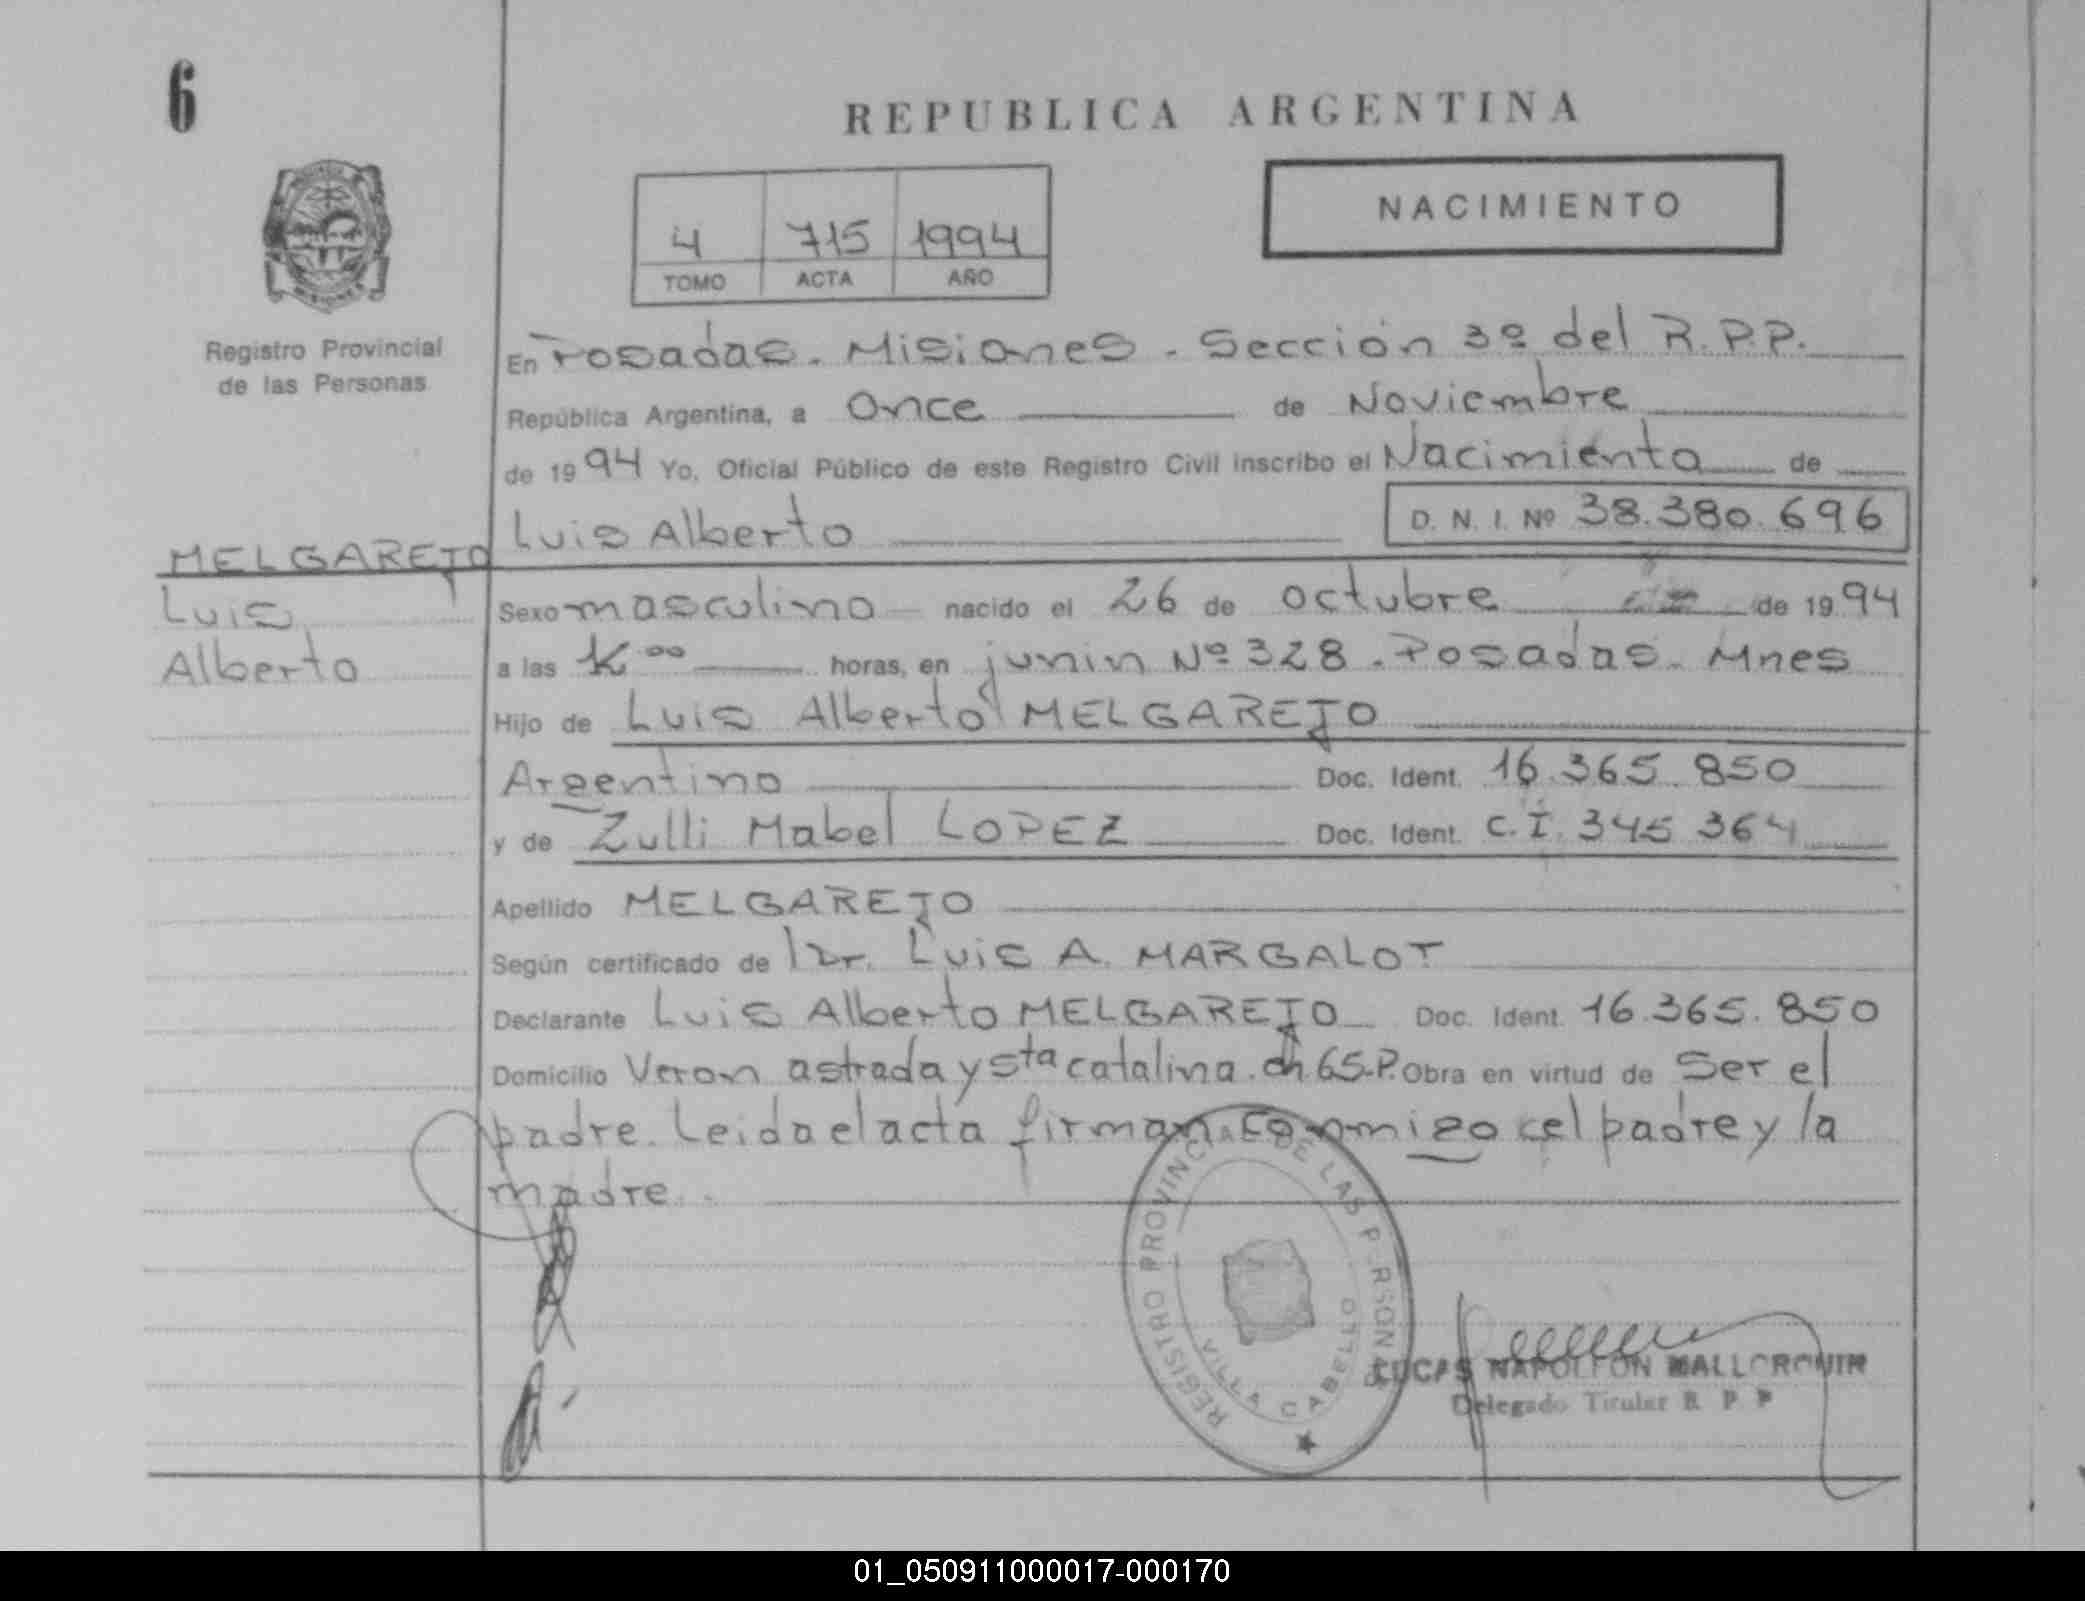 6
REPUBLICA ARGENTINA
NACIMIENTO
4 715 1994
TOMO ACTA AÑO
MISIONES
Registro Provincial
de las Personas
En Posadas. Misiones. Sección 3º del R.P.P.
República Argentina, a Once de Noviembre
de 1994 Yo, Oficial Público de este Registro Civil inscribo el Nacimiento de
Luis Alberto D. N. I. Nº 38.380.696
MELGAREJO
Luis
Alberto
Sexo masculino nacido el 26 de octubre de 1994
a las horas, en junin Nº 328. Posadas. Mnes
Hijo de Luis Alberto MELGAREJO
Argentino Doc. Ident. 16.365.850
y de Zulli Mabel LOPEZ Doc. Ident. C.I. 345 364
Apellido MELGAREJO
Según certificado de Dr. Luis A. MARGALOT
Declarante Luis Alberto MELGAREJO Doc. Ident. 16.365.850
Domicilio Veron astrada y Sta catalina. ch 65.P. Obra en virtud de Ser el
padre. Leida el acta firman conmigo el padre y la
madre.
REGISTRO PROVINCIAL DE LAS PERSONAS
VILLA CABELLO
LUCAS NAPOLEON MALLORQUIN
Delegado Titular R P P
01_050911000017-000170